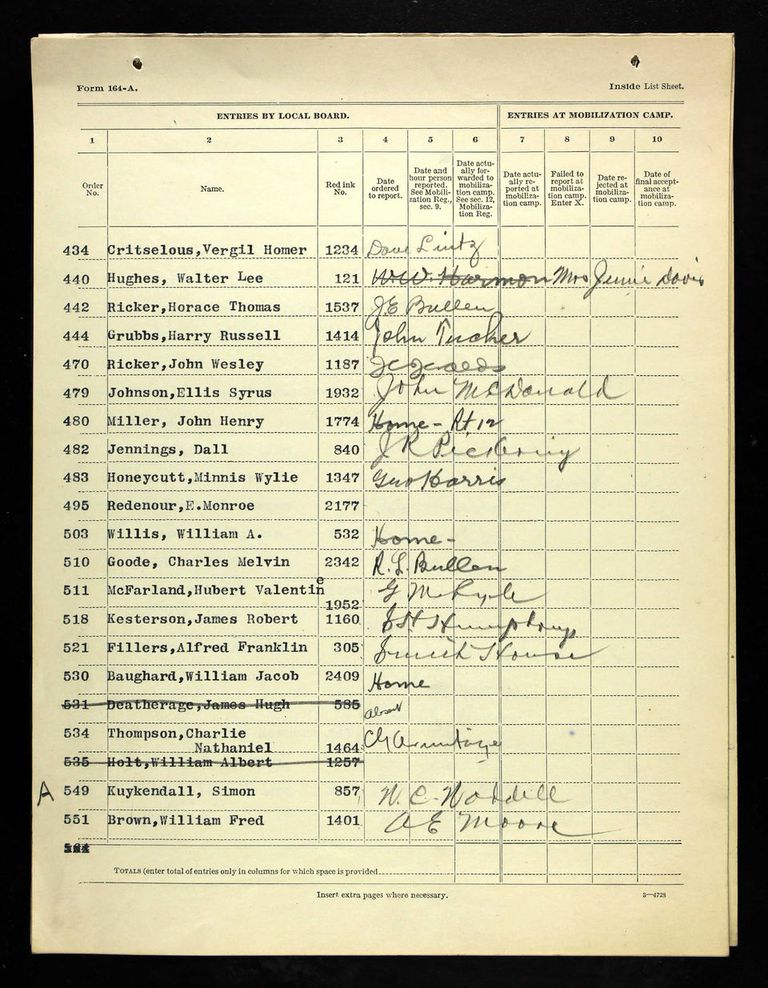 Form 164-A. Inside List Sheet.
ENTRIES BY LOCAL BOARD. ENTRIES AT MOBILIZATION CAMP.
1 2 3 4 5 6 7 8 9 10
Order No. Name. Red ink No. Date ordered to report. Date and hour person reported. See Mobilization Reg., sec. 9. Date actually forwarded to mobilization camp. See sec. 12, Mobilization Reg. Date actually reported at mobilization camp. Failed to report at mobilization camp. Enter X. Date rejected at mobilization camp. Date of final acceptance at mobilization camp.
434 Critselous,Vergil Homer 1234 Dave Lintz
440 Hughes, Walter Lee 121 W.W. Harmon Mrs Jennie Davis
442 Ricker,Horace Thomas 1537 J.E. Bullen
444 Grubbs,Harry Russell 1414 John Tucker
470 Ricker,John Wesley 1187
479 Johnson,Ellis Syrus 1932 John McDonald
480 Miller, John Henry 1774 Home - Rt 12
482 Jennings, Dall 840 J R Pickering
483 Honeycutt,Minnis Wylie 1347 Geo Harris
495 Redenour,E.Monroe 2177
503 Willis, William A. 532 Home -
510 Goode, Charles Melvin 2342 R. L. Bullen
511 McFarland,Hubert Valentine 1952 G
518 Kesterson,James Robert 1160 Humphreys
521 Fillers,Alfred Franklin 305 House
530 Baughard,William Jacob 2409 Home
531 Deatherage,James Hugh 585 absent
534 Thompson,Charlie
Nathaniel 1464 Armitage
535 Holt,William Albert 1257
A 549 Kuykendall, Simon 857 W. C. Waddell
551 Brown,William Fred 1401 A E Moore
TOTALS (enter total of entries only in columns for which space is provided
Insert extra pages where necessary. 3—4728